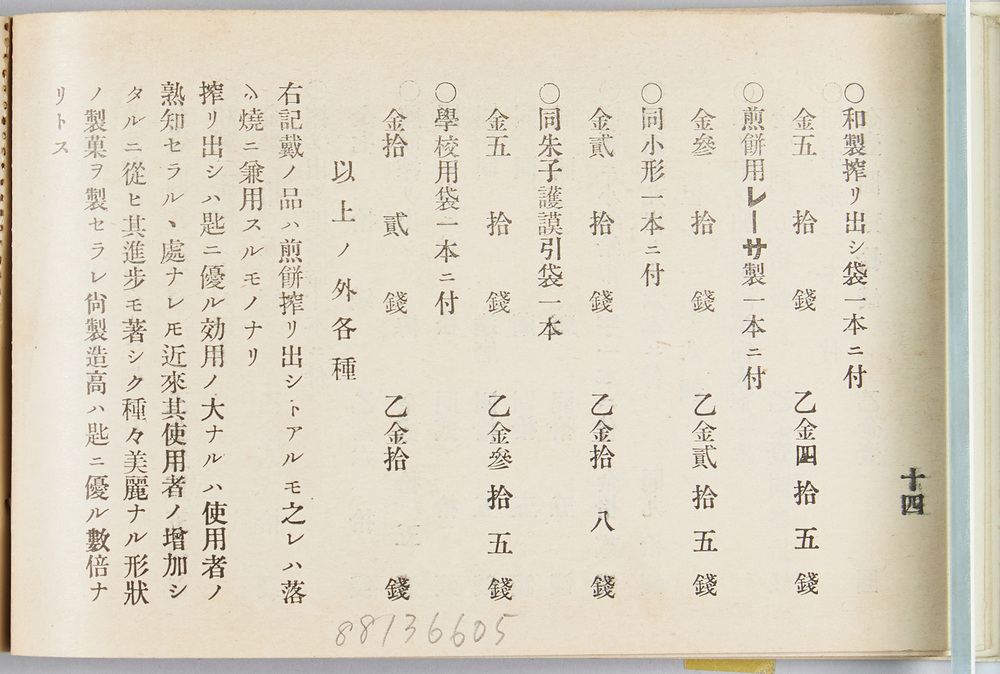 十四
○和製搾リ出シ袋一本ニ付
金五拾錢 乙金四拾五錢
○煎餅用レーサ製一本ニ付
金參拾錢 乙金貳拾五錢
○同小形一本ニ付
金貳拾錢 乙金拾八錢
○同朱子護謨引袋一本
金五拾錢 乙金參拾五錢
○學校用袋一本ニ付
金拾貳錢 乙金拾錢
以上ノ外各種
右記戴ノ品ハ煎餅搾リ出シトアルモ之レハ落
シ燒ニ兼用スルモノナリ
搾リ出シハ匙ニ優ル効用ノ大ナルハ使用者ノ
熟知セラルヽ處ナレ𪜈近來其使用者ノ增加シ
タルニ從ヒ其進步モ著シク種々美麗ナル形狀
ノ製菓ヲ製セラレ尙製造高ハ匙ニ優ル數倍ナ
リトス
88136605